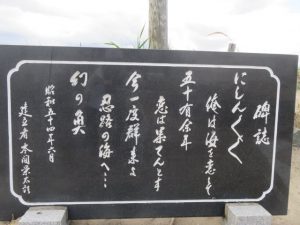 碑誌
にしん〱
俺は海を恋して
五十有余年
恋は果てんとす
今一度群来よ
忍路の海へ…
幻の魚
昭和五十四年六月
建立者 本間栄太郎